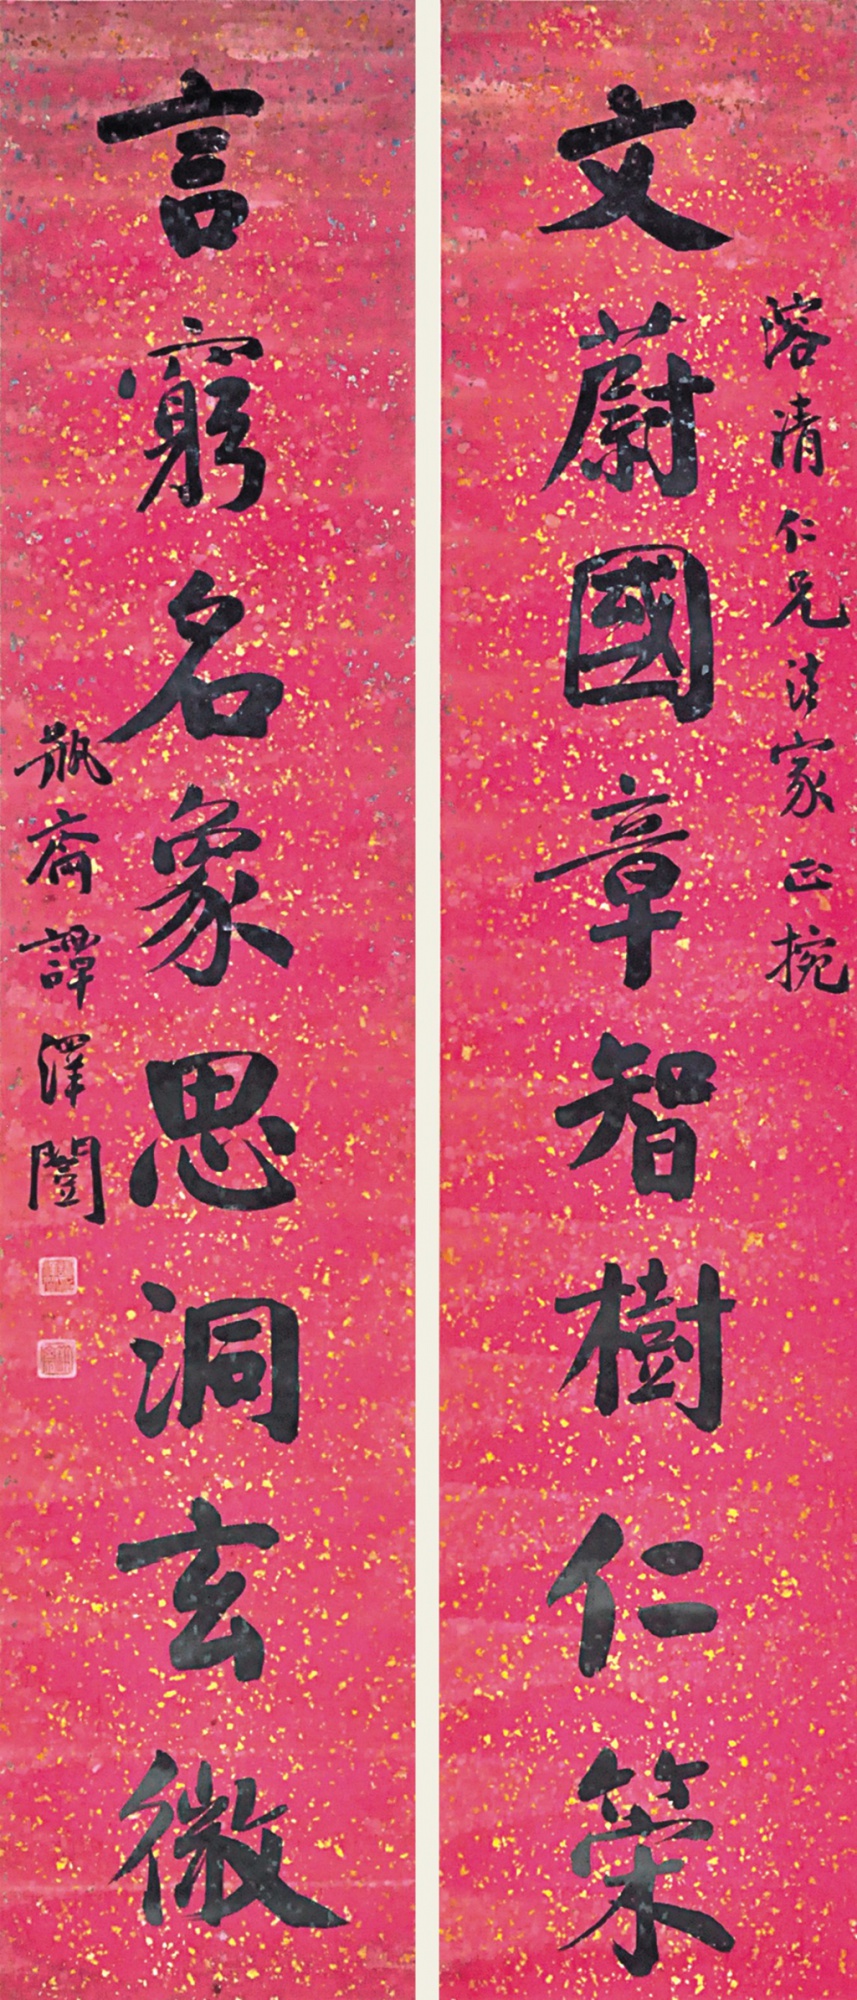 文蔚國章智樹仁築
溶清仁兄法家正捥
言窮名象思洞玄微
瓶齋譚澤闓